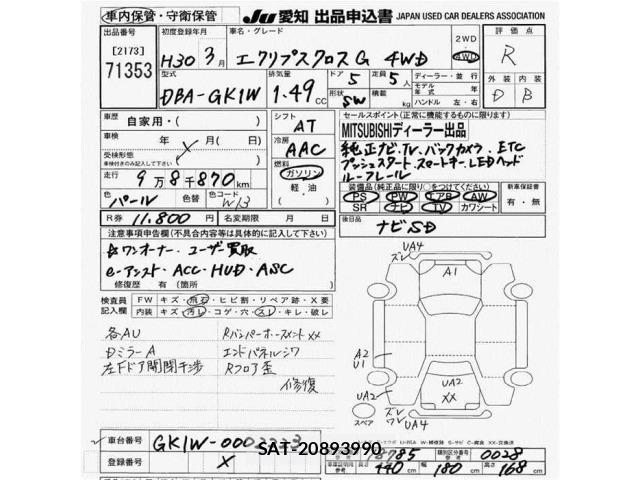 車内保管・守衛保管
JU 愛知 出品申込書 JAPAN USED CAR DEALERS ASSOCIATION
出品番号 [2173] 71353
初度登録年月 H30年 3月
車名・グレード エクリプスクロスG 4WD
2WD 4WD
評価点 R
型式 DBA-GK1W
排気量 1.49cc
ドア 5
形状 SW
定員 5人
積載 kg
ディーラー・並行
モデル年式 年
ハンドル 左・右
外装 D
内装 B
車歴 自家用・( )
車検 年 月( 日)
受検形態
車検付きのみ記入して下さい
走行 9万8千870km
色 パール
色替
色コード W13
R券 11,800円
名変期限 月 日
シフト AT
冷房 AAC
燃料 ガソリン 軽・油 ( )
セールスポイント(正常に機能するものに限ります)
MITSUBISHIディーラー出品
純正ナビ・TV・バックカメラ・ETC
プッシュスタート・スマートキー・LEDヘッド
ルーフレール
装備品(純正品に限り○をつけてください)
PS PW エアB AW
SR ナビ TV カワシート
新車保証書 有・無
後日品 ナビSD
注意事項申告欄(不具合内容等は具体的に記入して下さい)
☆ワンオーナー・ユーザー買取
e-アシスト・ACC・HUD・ASC
修復歴 有(箇所 )
検査員記入欄
FW キズ・飛石・ヒビ割・リペア跡・X要
内装 キズ・汚レ・コゲ・穴・スレ・キレ・破レ
各AU
DミラーA
左Fドア開閉干渉
Rバンパーホースメント XX
エンドパネルシワ
Rフロア歪
修復
UA4
ズレ
A1
A2
U1
UA2
UA2
XX
ズレ
ワレ
UA4
スペア
車台番号 GK1W-000
SAT-20893990
登録番号 X
8785
類別区分番号 0028
長さ 440 cm 幅 180 cm 高さ 168 cm